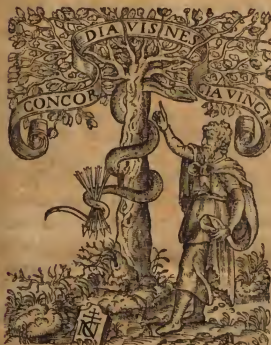 CONCOR
DIA VIS NES
CIA VINCI